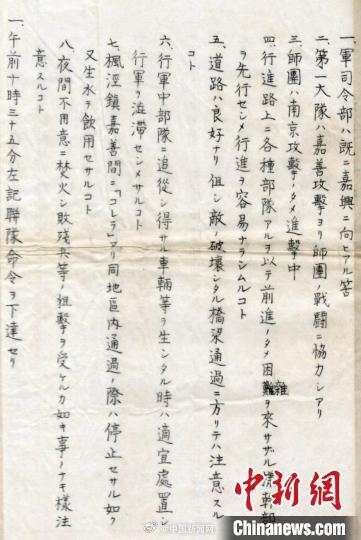 一、軍司令部ハ既ニ嘉興ニ向ヒアル筈
二、第一大隊ハ嘉善攻撃ヨリ師團ノ戰闘ニ協力シアリ
三、師團ハ南京攻撃ノタメ進撃中
四、行進路上ニ各種部隊アルヲ以テ前進ノタメ困難ヲ來サザル
ヲ先行セシメ行進ヲ容易ナラシムルコト
五、道路ハ良好ナリ但シ敵ノ破壊シタル橋梁通過ニ方リテハ注意スル
コト
六、行軍中部隊ニ追從シ得サル車輌等ヲ生シタル時ハ適宜處置シ
行軍ヲ澁滯セシメサルコト
七、楓涇鎮嘉善間ニ「コレラ」アリ同地區内通過ノ際ハ停止セサル如ク
又生水ヲ飲用セサルコト
八、夜間不用意ニ焚火シ敗殘兵等ノ狙撃ヲ受ケルカ如キ事ノナキ樣注
意スルコト
一、午前十時三十五分左記聯隊命令ヲ下達セリ
中新網
Chinanews.com
@中国新闻网